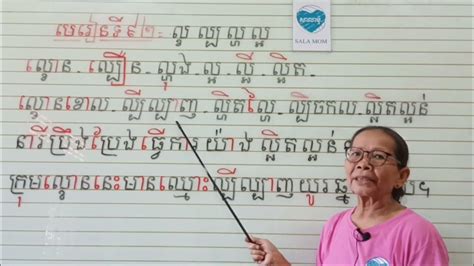 មេរៀនទី៩២: ល្ខ ល្ប ល្ហ ល្អ
សាលាម៉ុំ
SALA MOM
ល្ខោន - ល្បឿន - ល្ហុង - ល្អ - ល្អី - ល្អិត -
ល្ខោនខោល - ល្បីល្បាញ - ល្ហិតល្ហៃ - ល្បិចកល - ល្អិតល្អន់
នារីប្រឹងប្រែងធ្វើការយ៉ាងល្អិតល្អន់
ក្រុមល្ខោននេះមានឈ្មោះល្បីល្បាញយូរ